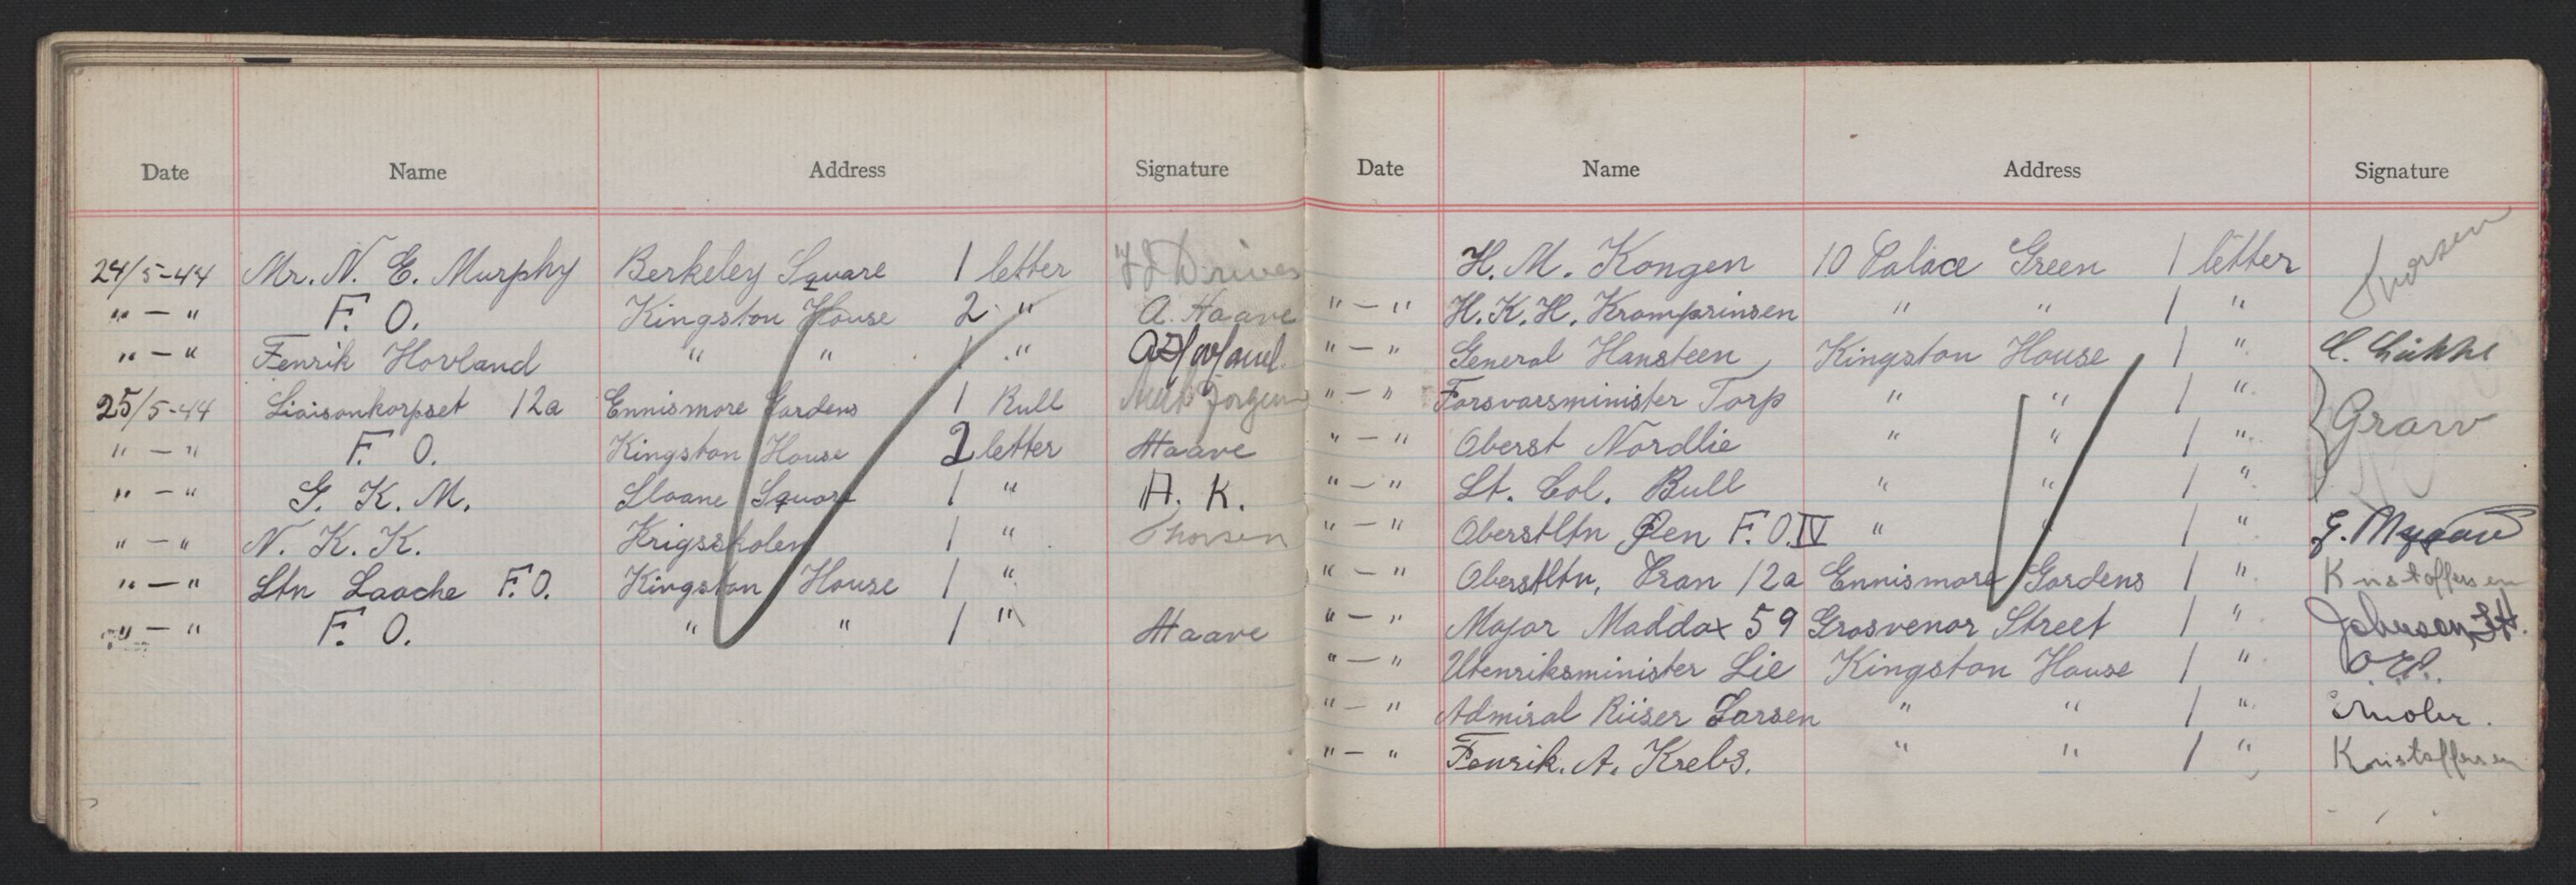 Date Name Address Signature
24/5-44 Mr. N. E. Murphy Berkeley Square 1 letter
" — " F. O. Kingston House 2 " A. Haave
" — " Fenrik Hovland " " 1 "
25/5-44 Liaisonkorpset 12a Ennismore Gardens 1 Rull
" — " F. O. Kingston House 2 letter Haave
" — " G. K. M. Sloane Square 1 " A. K.
" — " N. K. K. Krigsskolen 1 " Thorsen
" — " Ltn Laache F.O. Kingston House 1 "
" — " F. O. " " 1 " Haave
Date Name Address Signature
H. M. Kongen 10 Palace Green 1 letter
" — " H. K. H. Kromprinsen " " 1 "
" — " General Hansteen Kingston House 1 "
" — " Forsvarsminister Torp " " 1 "
" — " Oberst Nordlie " " 1 " Graw
" — " Lt. Col. Bull " " 1 "
" — " Oberstltn Øen F.O. IV " " 1 "
" — " Oberstltn. Tran 12a Ennismore Gardens 1 " Kristoffersen
" — " Major Maddox 59 Grosvenor Street 1 " Johnson
" — " Utenriksminister Lie Kingston House 1 "
" — " Admiral Riiser Larsen " " 1 "
" — " Fenrik. A. Krebs. " " 1 " Kristoffersen